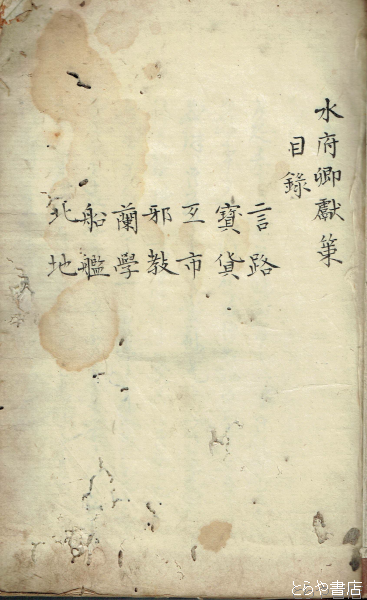 水府卿獻策
目錄
言路
寶貨
互市
邪教
蘭學
船艦
北地
とらや書店